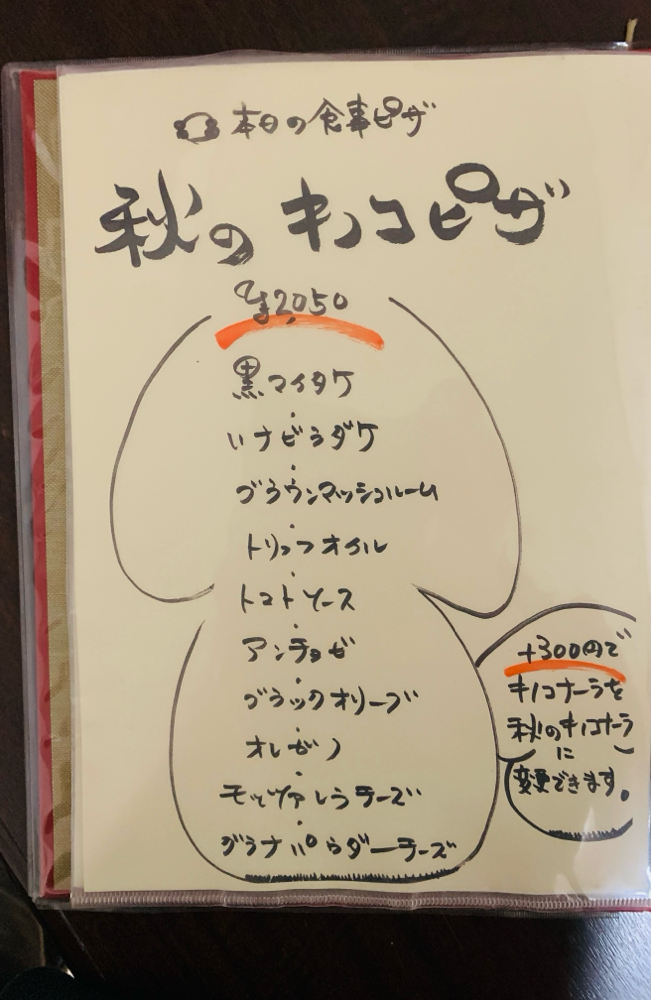 本日の食事ピザ
秋のキノコピザ
¥2,050
黒マイタケ
・
ハナビラダケ
・
ブラウンマッシュルーム
・
トリュフオイル
・
トマトソース
・
アンチョビ
・
ブラックオリーブ
・
オレガノ
・
モッツァレラチーズ
・
グラナパウダーチーズ
+300円で
キノコナーラを
秋のキノコナーラ
に
変更できます。